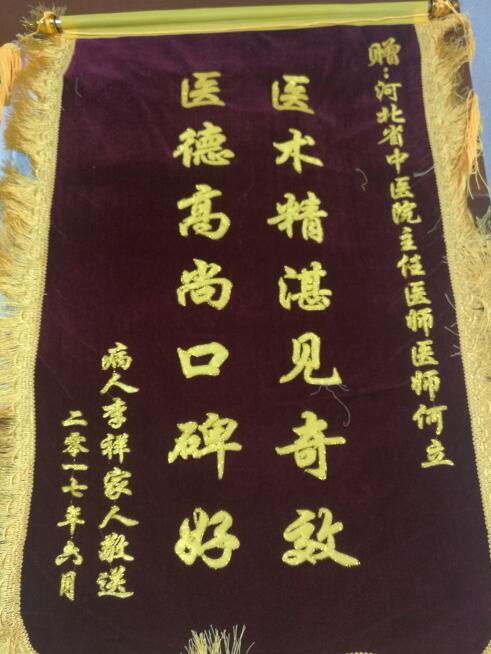 赠：河北省中医院主任医师医师何立
医术精湛见奇效
医德高尚口碑好
病人李祥家人敬送
二零一七年六月